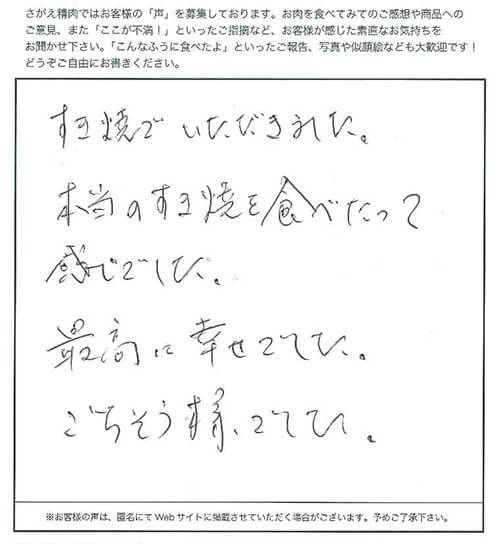 さがえ精肉ではお客様の「声」を募集しております。お肉を食べてみてのご感想や商品への
ご意見、また「ここが不満！」といったご指摘など、お客様が感じた素直なお気持ちを
お聞かせ下さい。「こんなふうに食べたよ」といったご報告、写真や似顔絵なども大歓迎です！
どうぞご自由にお書きください。
すき焼でいただきました。
本当のすき焼を食べたって
感じでした。
最高に幸せでした。
ごちそう様でした。
※お客様の声は、匿名にてWebサイトに掲載させていただく場合がございます。予めご了承下さい。